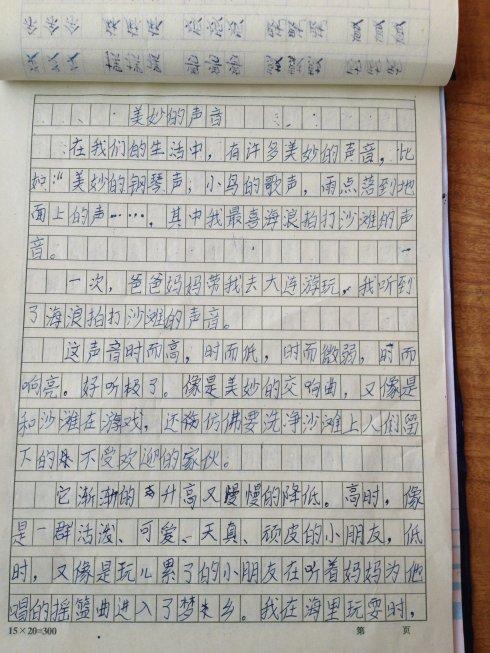 美妙的声音
在我们的生活中，有许多美妙的声音，比
如：“美妙的钢琴声，小鸟的歌声，雨点落到地
面上的声……，其中我最喜海浪拍打沙滩的声
音。
一次，爸爸妈妈带我去大连游玩，我听到
了海浪拍打沙滩的声音。
这声音时而高，时而低，时而微弱，时而
响亮。好听极了。像是美妙的交响曲，又像是
和沙滩在游戏，还仿佛要洗净沙滩上人们留
下的不受欢迎的家伙。
它渐渐的升高又慢慢的降低。高时，像
是一群活泼、可爱、天真、顽皮的小朋友，低
时，又像是玩儿累了的小朋友在听着妈妈为他
唱的摇篮曲进入了梦乡。我在海里玩耍时，
15×20=300 第 页